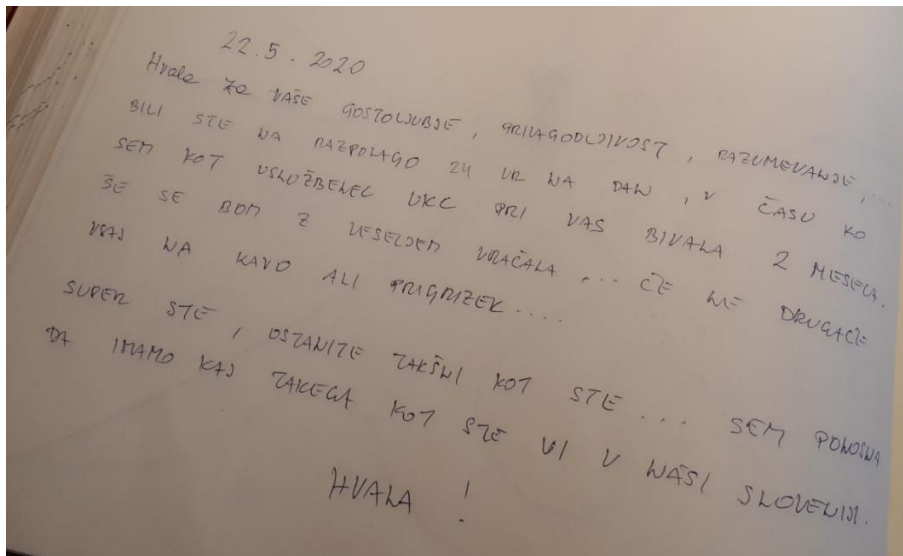 22.5.2020
Hvala za VAŠE GOSTOLJUBJE, PRILAGODLJIVOST, RAZUMEVANJE,...
BILI STE NA RAZPOLAGO 24 UR NA DAN, V ČASU KO
SEM KOT USLUŽBENEC UKC PRI VAS BIVALA 2 MESECA.
ŠE SE BOM Z VESELJEM VRAČALA,... ČE NE DRUGAČE
VSAJ NA KAVO ALI PRIGRIZEK....
SUPER STE, OSTANITE TAKŠNI KOT STE... SEM PONOSNA
DA IMAMO KAJ TAKEGA KOT STE VI V NAŠI SLOVENIJI.
HVALA!